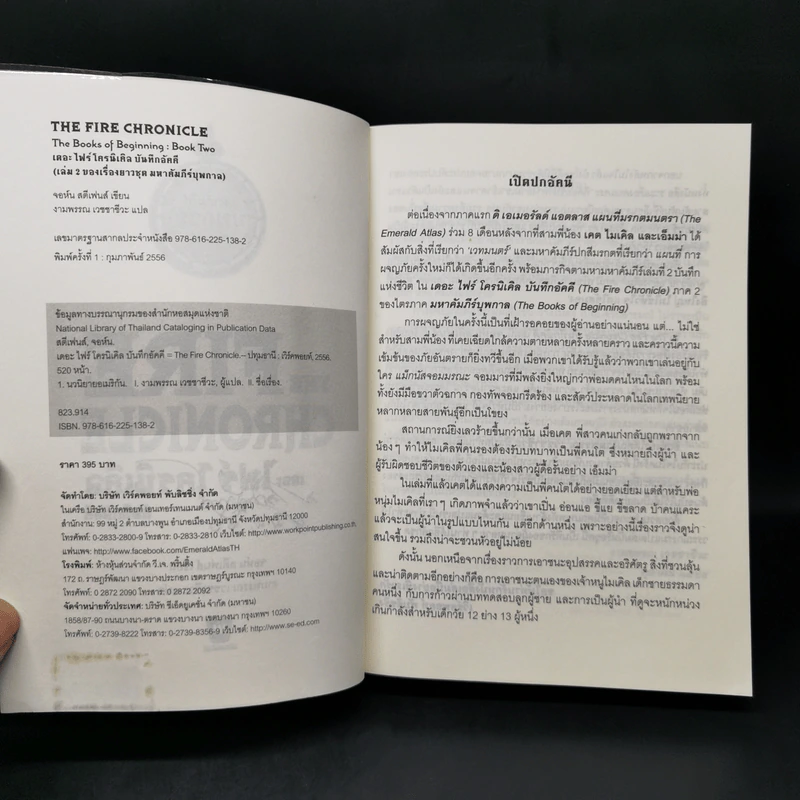 THE FIRE CHRONICLE
The Books of Beginning : Book Two
เดอะ ไฟร์ โครนิเคิล บันทึกอัคคี
(เล่ม 2 ของเรื่องยาวชุด มหาคัมภีร์บุพกาล)
จอห์น สตีเฟนส์ เขียน
งามพรรณ เวชชาชีวะ แปล
เลขมาตรฐานสากลประจำหนังสือ 978-616-225-138-2
พิมพ์ครั้งที่ 1 : กุมภาพันธ์ 2556
ข้อมูลทางบรรณานุกรมของสำนักหอสมุดแห่งชาติ
National Library of Thailand Cataloging in Publication Data
สตีเฟนส์, จอห์น.
เดอะ ไฟร์ โครนิเคิล บันทึกอัคคี = The Fire Chronicle.-- ปทุมธานี : เวิร์คพอยท์, 2556.
520 หน้า.
1. นวนิยายอเมริกัน. I. งามพรรณ เวชชาชีวะ, ผู้แปล. II. ชื่อเรื่อง.
823.914
ISBN. 978-616-225-138-2
ราคา 395 บาท
จัดทำโดย: บริษัท เวิร์คพอยท์ พับลิชชิ่ง จำกัด
ในเครือ บริษัท เวิร์คพอยท์ เอนเทอร์เทนเมนต์ จำกัด (มหาชน)
สำนักงาน: 99 หมู่ 2 ตำบลบางพูน อำเภอเมืองปทุมธานี จังหวัดปทุมธานี 12000
โทรศัพท์: 0-2833-2800-9 โทรสาร: 0-2833-2810 เว็บไซต์: http://www.workpointpublishing.co.th
แฟนเพจ: http://www.facebook.com/EmeraldAtlasTH
โรงพิมพ์: ห้างหุ้นส่วนจำกัด วี.เจ. พริ้นติ้ง
172 ถ. ราษฎร์พัฒนา แขวงบางปะกอก เขตราษฎร์บูรณะ กรุงเทพฯ 10140
โทรศัพท์: 0 2872 2090 โทรสาร: 0 2872 2092
จัดจำหน่ายทั่วประเทศ: บริษัท ซีเอ็ดยูเคชั่น จำกัด (มหาชน)
1858/87-90 ถนนบางนา-ตราด แขวงบางนา เขตบางนา กรุงเทพฯ 10260
โทรศัพท์: 0-2739-8222 โทรสาร: 0-2739-8356-9 เว็บไซต์: http://www.se-ed.com
เปิดปกอัคนี
ต่อเนื่องจากภาคแรก ดิ เอเมอรัลด์ แอตลาส แผนที่มรกตมนตรา (The
Emerald Atlas) ร่วม 8 เดือนหลังจากที่สามพี่น้อง เคต ไมเคิล และเอ็มม่า ได้
สัมผัสกับสิ่งที่เรียกว่า 'เวทมนตร์' และมหาคัมภีร์ปกสีมรกตที่เรียกว่า แผนที่ การ
ผจญภัยครั้งใหม่ก็ได้เกิดขึ้นอีกครั้ง พร้อมภารกิจตามหามหาคัมภีร์เล่มที่ 2 บันทึก
แห่งชีวิต ใน เดอะ ไฟร์ โครนิเคิล บันทึกอัคคี (The Fire Chronicle) ภาค 2
ของไตรภาค มหาคัมภีร์บุพกาล (The Books of Beginning)
การผจญภัยในครั้งนี้เป็นที่เฝ้ารอคอยของผู้อ่านอย่างแน่นอน แต่... ไม่ใช่
สำหรับสามพี่น้อง ที่เคยเฉียดใกล้ความตายหลายครั้งหลายคราว และคราวนี้ความ
เข้มข้นของภัยอันตรายก็ยิ่งทวีขึ้นอีก เมื่อพวกเขาได้รับรู้แล้วว่าพวกเขาเล่นอยู่กับ
ใคร แม็กนัสจอมมรณะ จอมมารที่มีพลังยิ่งใหญ่กว่าพ่อมดคนไหนในโลก พร้อม
ทั้งยังมีมือขวาตัวฉกาจ กองทัพจอมกรีดร้อง และสัตว์ประหลาดในโลกเทพนิยาย
หลากหลายสายพันธุ์อีกเป็นโขยง
สถานการณ์ยิ่งเลวร้ายขึ้นกว่านั้น เมื่อเคต พี่สาวคนเก่งกลับถูกพรากจาก
น้องๆ ทำให้ไมเคิลพี่คนรองต้องรับบทบาทเป็นพี่คนโต ซึ่งหมายถึงผู้นำ และ
ผู้รับผิดชอบชีวิตของตัวเองและน้องสาวผู้ดื้อรั้นอย่าง เอ็มม่า
ในเล่มที่แล้วเคตได้แสดงความเป็นพี่คนโตได้อย่างยอดเยี่ยม แต่สำหรับพ่อ
หนุ่มไมเคิลที่เราๆ เกิดภาพจำแล้วว่าเขาเป็น อ่อนแอ ขี้แย ขี้ขลาด บ้าคนแคระ
แล้วจะเป็นผู้นำในรูปแบบไหนกัน แต่อีกด้านหนึ่ง เพราะอย่างนี้เรื่องราวจึงดูน่า
สนใจขึ้น รวมถึงน่าจะชวนหัวอยู่ไม่น้อย
ดังนั้น นอกเหนือจากเรื่องราวการเอาชนะอุปสรรคและอริศัตรู สิ่งที่ชวนลุ้น
และน่าติดตามอีกอย่างก็คือ การเอาชนะตนเองของเจ้าหนูไมเคิล เด็กชายธรรมดา
คนหนึ่ง กับการก้าวผ่านบททดสอบลูกผู้ชาย และการเป็นผู้นำ ที่ดูจะหนักหน่วง
เกินกำลังสำหรับเด็กวัย 12 ย่าง 13 ผู้หนึ่ง